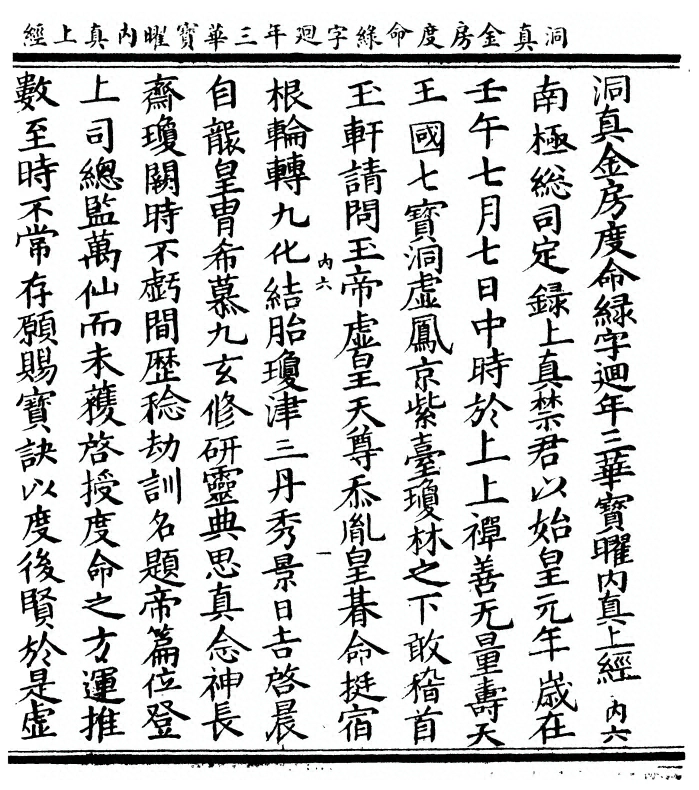 洞真金房度命綠字迴年三華寳曜內真上經
洞真金房度命緑字迴年三華寳曜内真上經 内六
南極總司定録上真禁君以始皇元年歲在
壬午七月七日中時於上上禪善无量壽天
王國七寳洞虛鳳京紫臺瓊林之下敢稽首
玉軒請問玉帝虛皇天尊忝胤皇朞命挺宿
内六
一
根輪轉九化結胎瓊津三丹秀景日吉啓晨
自襲皇胄希慕九玄修研靈典思真念神長
齋瓊闕時不虧間歷稔劫訓名題帝篇位登
上司總監萬仙而未獲啓授度命之方運推
數至時不常存願賜寳訣以度後賢於是虛